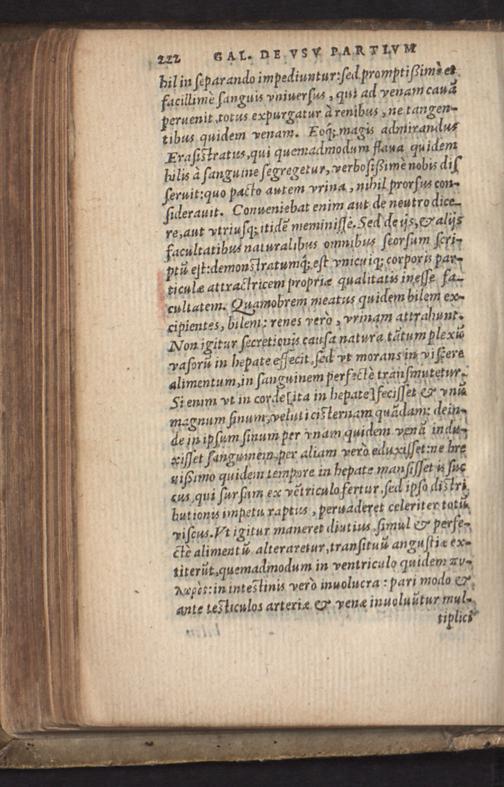 222 GAL. DE VSV PARTIVM
hil in separando impediuntur: sed promptißimè et
facillimè sanguis vniuersus, qui ad venam cauã
peruenit, totus expurgatur à renibus, ne tangen-
tibus quidem venam. Eoq́; magis admirandus
Erasistratus, qui quemadmodum flaua quidem
bilis à sanguine segregetur, verbosißimè nobis dis
seruit: quo pacto autem vrina, nihil prorsus con-
siderauit. Conueniebat enim aut de neutro dice-
re, aut vtriusq; itidẽ meminisse. Sed de ijs, & alijs
facultatibus naturalibus omnibus seorsum scri-
ptũ est: demonstratumq́; est vnicuiq; corporis par-
ticulæ attractricem propriæ qualitatis inesse fa-
cultatem. Quamobrem meatus quidem bilem ex-
cipientes, bilem: renes verò, vrinam attrahunt.
Non igitur secretionis causa natura tãtum plexũ
vasorũ in hepate effecit, sed vt morans in viscere
alimentum, in sanguinem perfectè transmutetur.
Si enim vt in corde [ita in hepate] fecisset & vnũ
magnum sinum, veluti cisternam quãdam: dein-
de in ipsum sinum per vnam quidem venã indu-
xisset sanguinem, per aliam verò eduxisset: ne bre
uissimo quidem tempore in hepate mansisset is suc
cus, qui sursum ex vẽtriculo fertur, sed ipso distri
butionis impetu raptus, peruaderet celeriter totũ
viscus. Vt igitur maneret diutius, simul & perfe-
ctè alimentũ alteraretur, transituũ angustiæ ex-
titerũt, quemadmodum in ventriculo quidem πυ-
λωρὸς: in intestinis verò inuolucra: pari modo &
ante testiculos arteriæ & venæ inuoluũtur mul-
tiplici